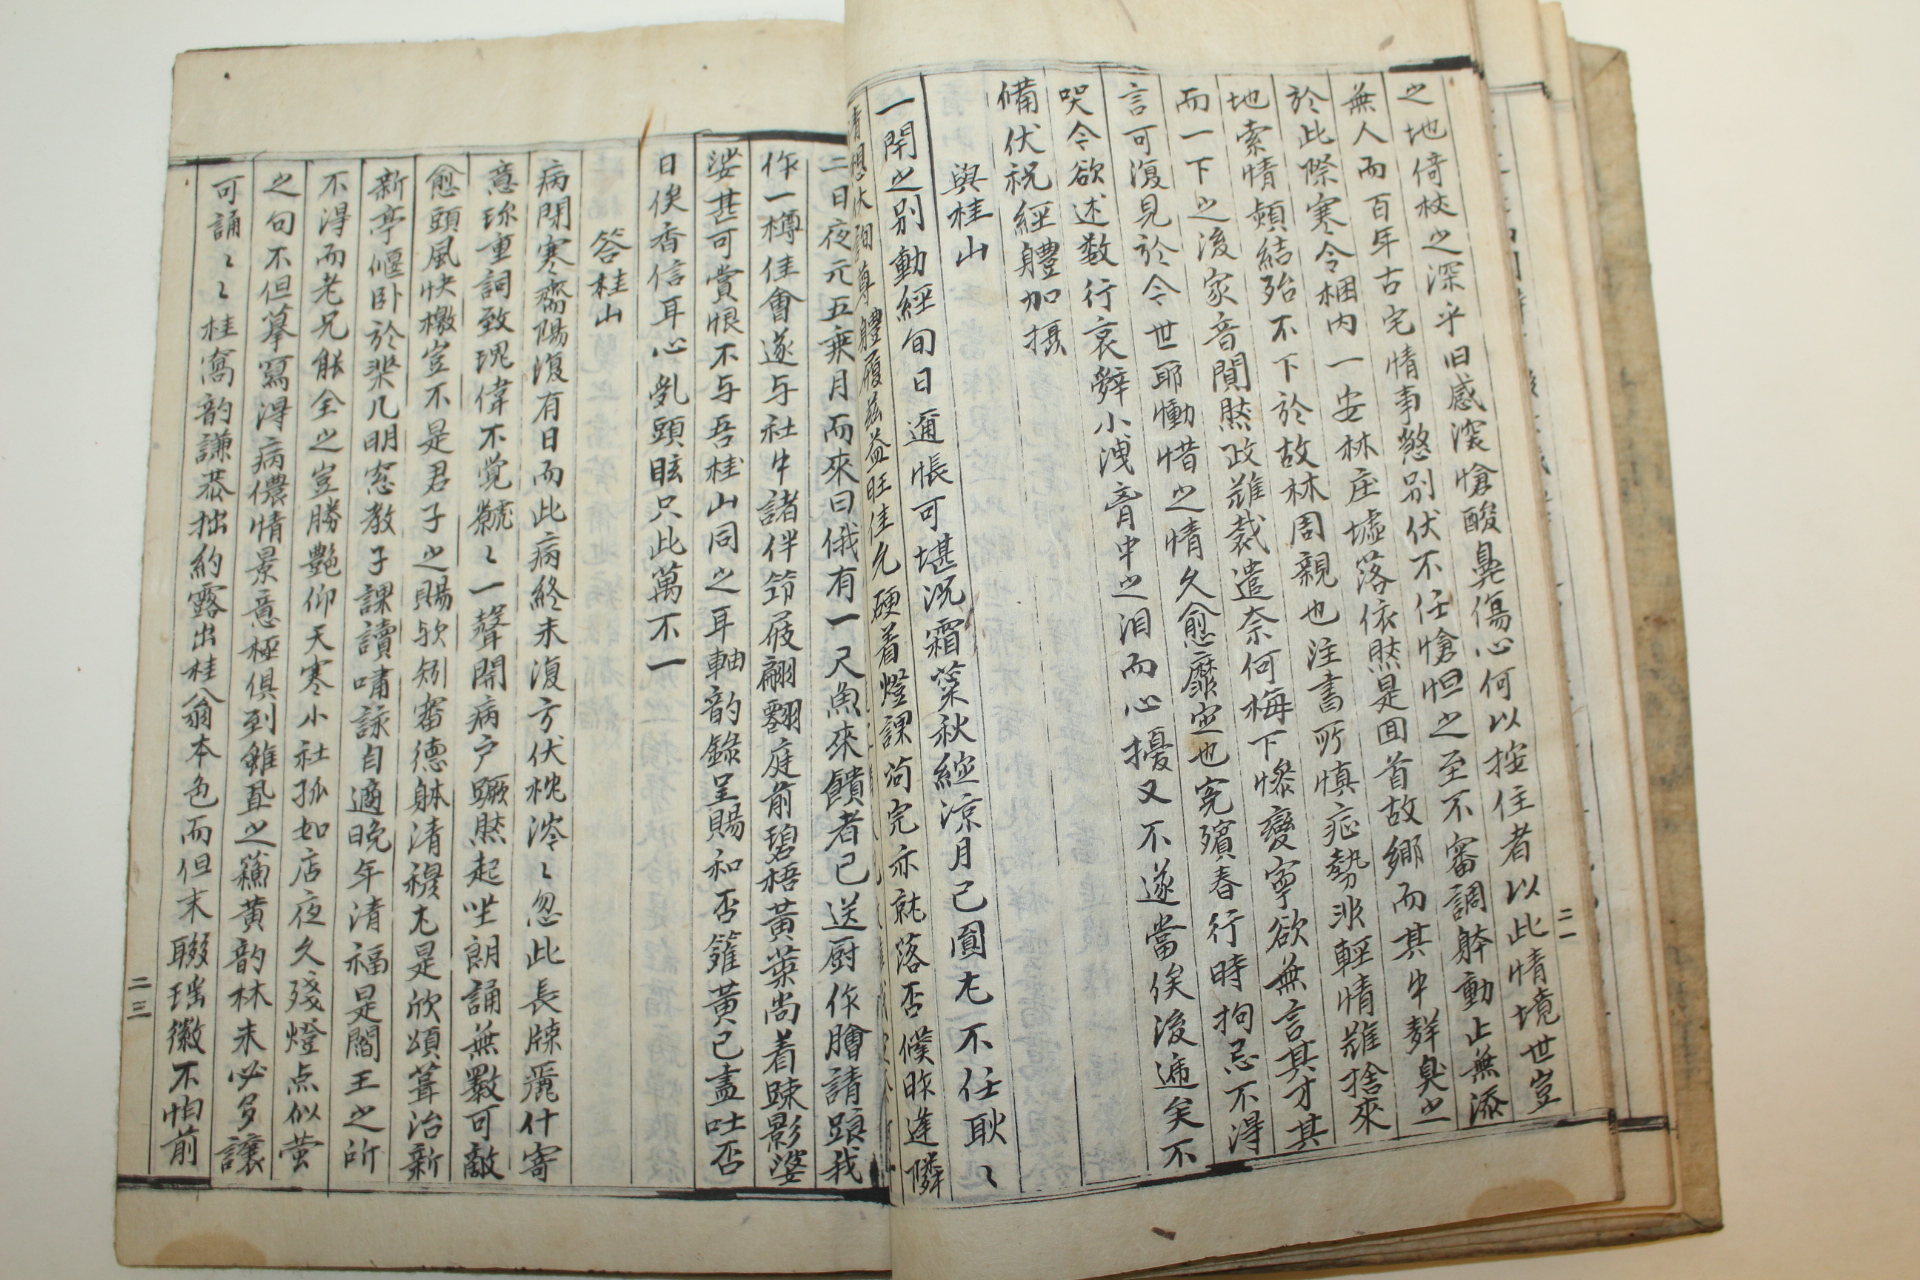 之地倚杖之深乎旧感深愴酸鼻傷心何以按住者以此情境世豈
無人而百年古宅情事慜别伏不任愴怛之至不審調躰動止無添
於此際寒令梱内一安林庄墟落依然是囬首故鄉而其中群臭之
地索情頼結殆不下於故林周親也注書所慎症勢非輕情雖捨來
而一下之後家音闃然政雖裁遣奈何梅下慘變寧欲無言其才其
言可復見於今世耶慟惜之情久愈靡定也寃殯春行時拘忌不得
哭今欲述数行哀辭小洩脊中之泪而心擾又不遂當俟後遞矣不
備伏祝經軆加攝
與桂山
一閈之别動經旬日邇悵可堪况霜葉秋婝凉月已圓尤不任耿〻
清想伏詢尊軆履茲益旺佳允硬着燈課苟完亦就落否僕昨逢隣
二日夜元五乘月而來曰俄有一尺魚來饋者已送厨作膾請踉我
作一樽佳會遂与社中諸伴笻屐翩翻庭前碧梧黄葉尚着踈影婆
娑甚可賞恨不与吾桂山同之耳軸韵錄呈賜和否籬黄已盡吐否
日俟香信耳心乱頭眩只此萬不一
答桂山
病閉寒齋陽復有日而此病終未復方伏枕涔〻忽此長牘麗什寄
意珎重詞致瑰偉不覚虩〻一聲開病户蹶然起坐朗誦無斁可敵
愈頭風快檄豈不是君子之賜欤矧審德躰清穆尤是欣頌葺治新
新亭偃卧於棐几明窓教子課讀嘯詠自適晩年清福是閻王之所
不得而老兄能全之豈勝艶仰天寒小社孤如店夜久殘燈点似螢
之句不但摹寫得病儂情景意極俱到雖置之蘓黄韵林未必多讓
可誦〻〻桂窩韵謙恭拙約露出桂翁本色而但末聯瑤徽不怕前
二一
二三